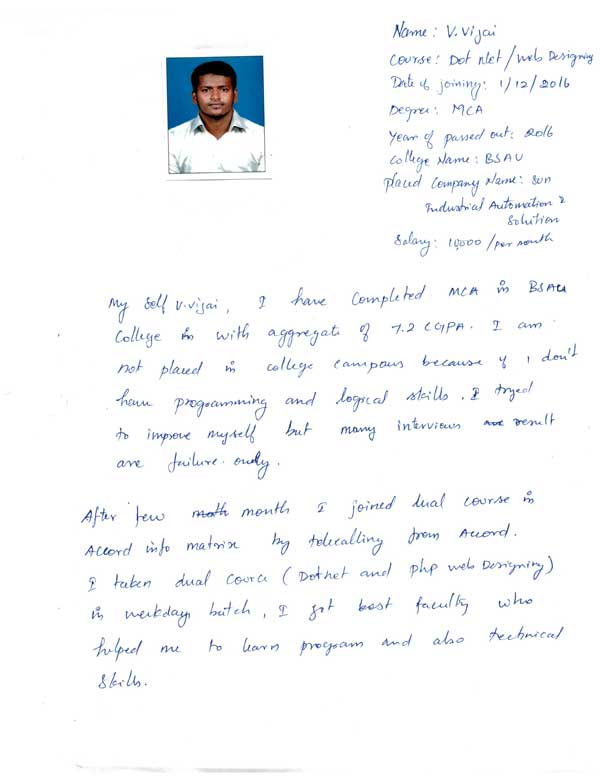 Name: V. Vijai
Course: Dot Net / Web Designing
Date of joining: 1/12/2016
Degree: MCA
Year of passed out: 2016
College Name: BSAU
Placed Company Name: Sun
Industrial Automation &
Solution
Salary: 10,000 / per month
My Self V. Vijai, I have Completed MCA in BSAU
College in with aggregate of 7.2 CGPA. I am
not placed in college campous because of I don't
have programming and logical skills. I tryed
to improve myself but many interviews result
are failure. only.
After few month I joined dual course in
Accord info matrix by telecalling from Accord.
I taken dual Cource (Dotnet and php web Designing)
in weekdays batch, I got best faculty who
helped me to learn program and also technical
Skills.